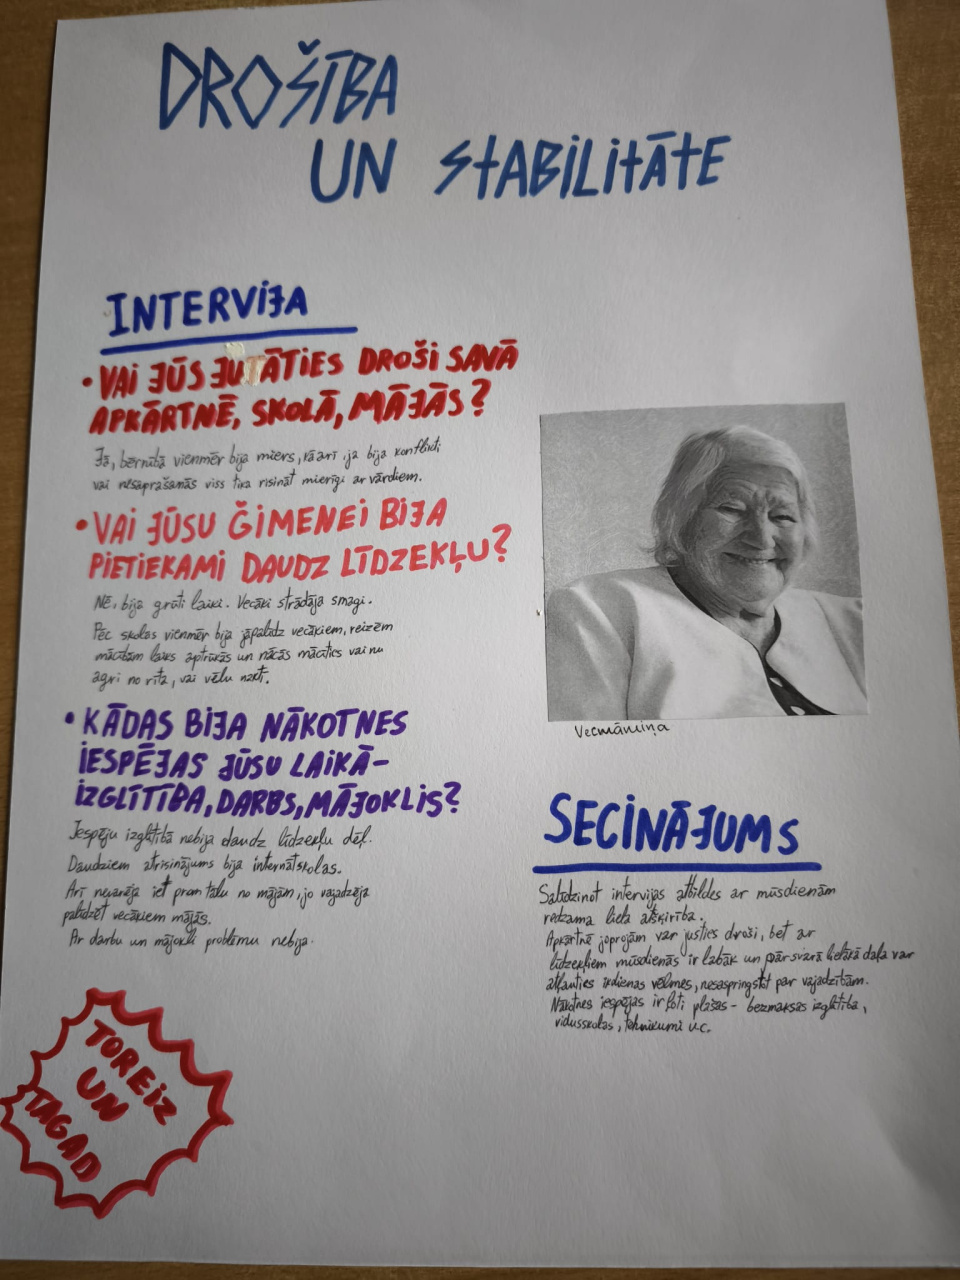 DROŠĪBA
UN STABILITĀTE
INTERVIJA
• VAI JŪS JUTĀTIES DROŠI SAVĀ
APKĀRTNĒ, SKOLĀ, MĀJĀS?
Jā, bērnībā vienmēr bija miers, kā arī ja bija konflikti
vai nesaprašanās viss tika risināt mierīgi ar vārdiem.
• VAI JŪSU ĢIMENEI BIJA
PIETIEKAMI DAUDZ LĪDZEKĻU?
Nē, bija grūti laiki. Vecāki strādāja smagi.
Pēc skolas vienmēr bija jāpalīdz vecākiem, reizēm
mācībām laiks aptrūkās un nācās mācīties vai nu
agri no rīta, vai vēlu naktī.
• KĀDAS BIJA NĀKOTNES
IESPĒJAS JŪSU LAIKĀ-
IZGLĪTĪBA, DARBS, MĀJOKLIS?
Iespēju izglītībā nebija daudz līdzekļu dēļ.
Daudziem atrisinājums bija internātskolas.
Arī nevarēja iet prom tālu no mājām, jo vajadzēja
palīdzēt vecākiem mājās.
Ar darbu un mājokli problēmu nebija.
TOREIZ
UN
TAGAD
Vecmāmiņa
SECINĀJUMS
Salīdzinot intervijas atbildes ar mūsdienām
redzama liela atšķirība.
Apkārtnē joprojām var justies droši, bet ar
līdzekļiem mūsdienās ir labāk un pārsvarā lielākā daļa var
atļauties ikdienas vēlmes, nesaspringstot par vajadzībām.
Nākotnes iespējas ir ļoti plašas - bezmaksas izglītība,
vidusskolas, tehnikumi u.c.